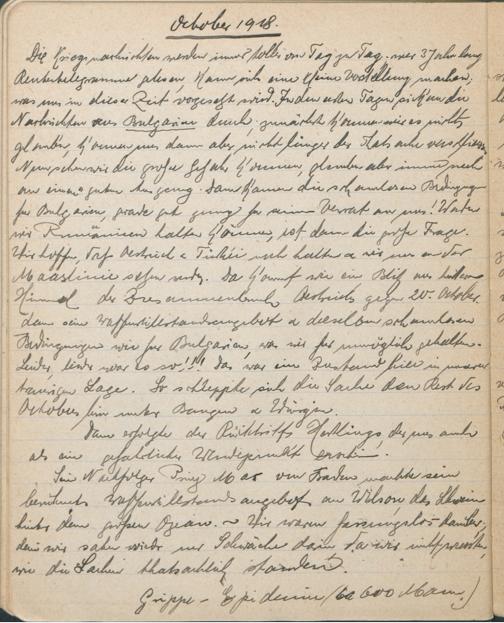 October 1918.
Die Kriegsnachrichten werden immer toller von Tag zu Tag. wer 3 Jahre lang
Reutertelegramme gelesen, kann sich eine kleine Vorstellung machen,
was uns in dieser Zeit vorgesetzt wird. In den ersten Tagen sickern die
Nachrichten aus Bulgarien durch. zunächst können wir es nicht
glauben, können uns dann aber nicht länger der Tatsache verschliessen
wir die große Gefahr kennen, glauben aber immer noch
an einen guten Ausgang. Dann kamen die schamlosen Bedingungen
für Bulgarien, gerade gut genug für seinen Verrat an uns! Werden
wir Rumänien halten können, ist dann die große Frage.
Wir hoffen, daß Oestreich u Türkei noch halten u wir uns an der
Maaslinie Da kommt wie ein Blitz aus heiterem
Himmel der Zusammenbruch Oestreichs gegen 20. October.
dann sein Waffenstillstandsangebot u dieselben schamlosen
Bedingungen wie für Bulgarien, was wir für unmöglich gehalten.
Leider, leider war es so!!!! Das war ein Zustand hier in unserer
Lage. So schleppte sich die Sache den Rest des
Octobers hin unter Bangen u Würgen.
Dann erfolgte der Rücktritt Hertlings der uns auch
als ein gefährlicher Wendepunkt erschien.
Sein Nachfolger Prinz Max von Baden machte sein
berühmtes Waffenstillstandsangebot an Wilson, das Schwein
hinter dem großen Ozean. ~ Wir waren fassungslos darüber,
denn wir sahen wieder nur Schwäche darin, da wir nicht wussten,
wie die Sachen thatsächlich standen.
Grippe - Epidemie (ca 600 Mann)